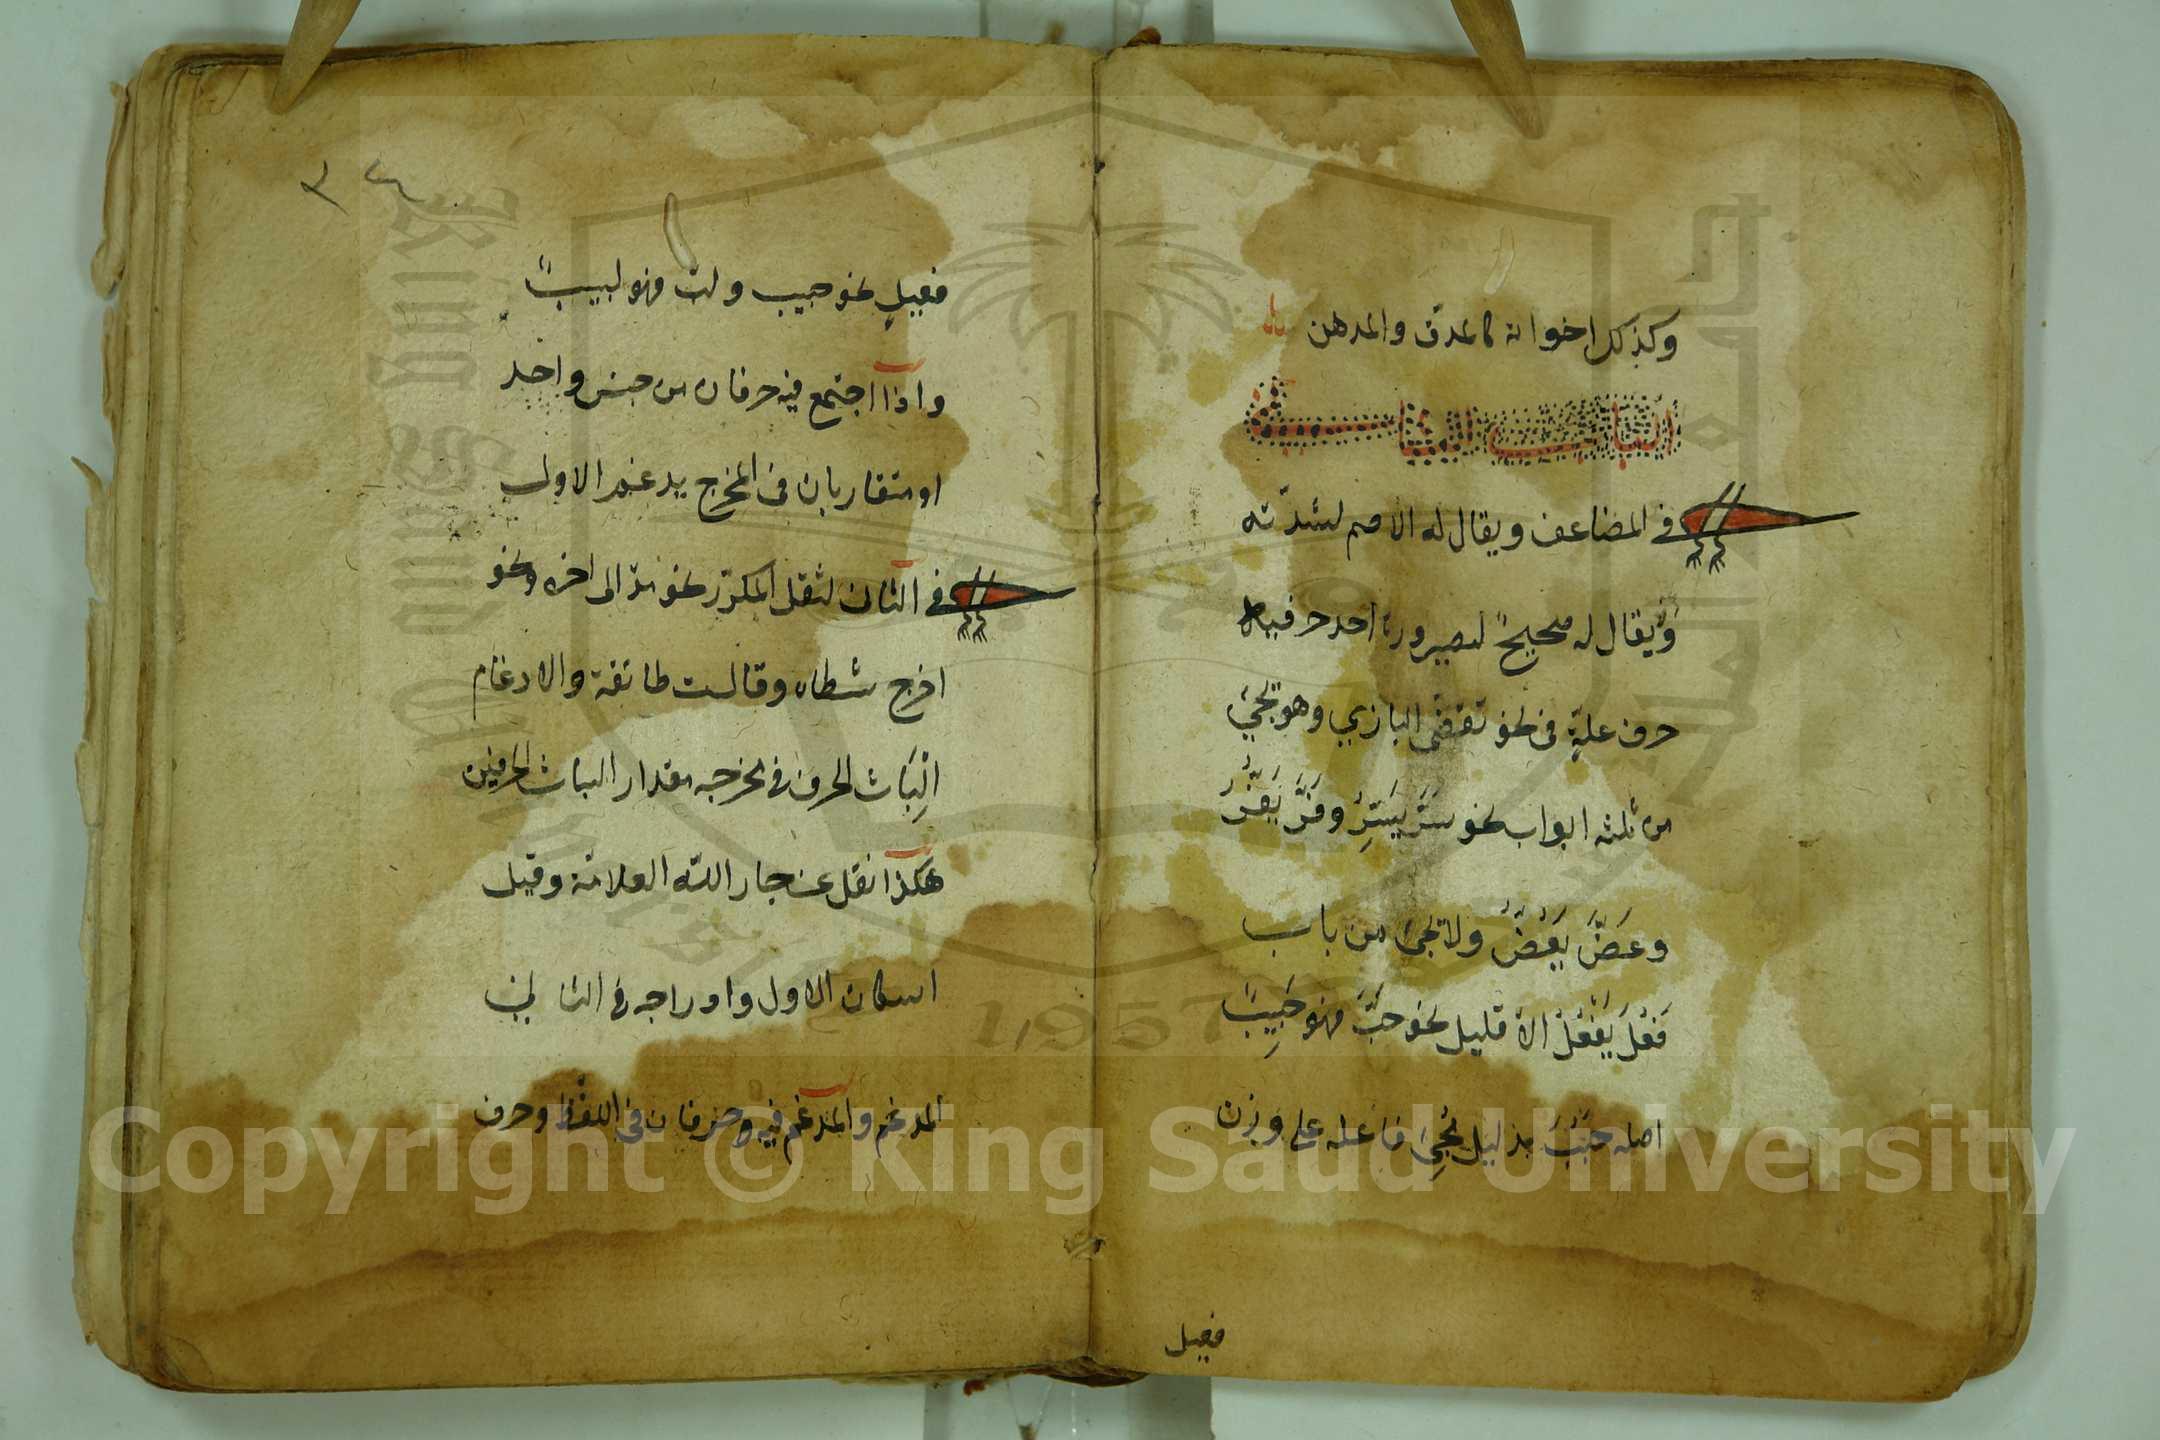 وكذلك اخواته كالمدق والمدهن
الباب الثاني
في المضاعف ويقال له الاصم لشدّته
وَيقال له صحيحٌ لصيرورة احد حرفيه
حرف علةٍ في نحو تقضّى البازي وهو يجئ
من ثلثه ابواب نحو سَرَّ يَسُرُّ وفَرَّ يَفِرُّ
وعَضَّ يَعَضُّ ولا يجئ من باب
فَعُلَ يَفْعُلُ الا قليل نحو حَبَّ فهو حَبِيبٌ
اصله حَبُبَ بدليل يَجِئ فاعله على وزن
فعيل
٣٤
فعيلٍ نحو حبيب ولبّ فهو لبيبٌ
واذا اجتمع فيه حرفان من جنس واحد
او متقاربان في المخرج يدغم الاول
في الثان لثقل المكرّر نحو مدّ الى اخره ونحو
اخرج شطاه وقالت طائفة والادغام
اِلْبَاث الحرف في مخرجه مقدار الباث الحرفين
هكذا نقل عن جار الله العلامة وقيل
اسكان الاول وادراجه في الثاني
المدغم والمدغم فيه حرفان في اللفظ وحرف
Copyright © King Saud University
King Saud University
جامعة الملك سعود
1957